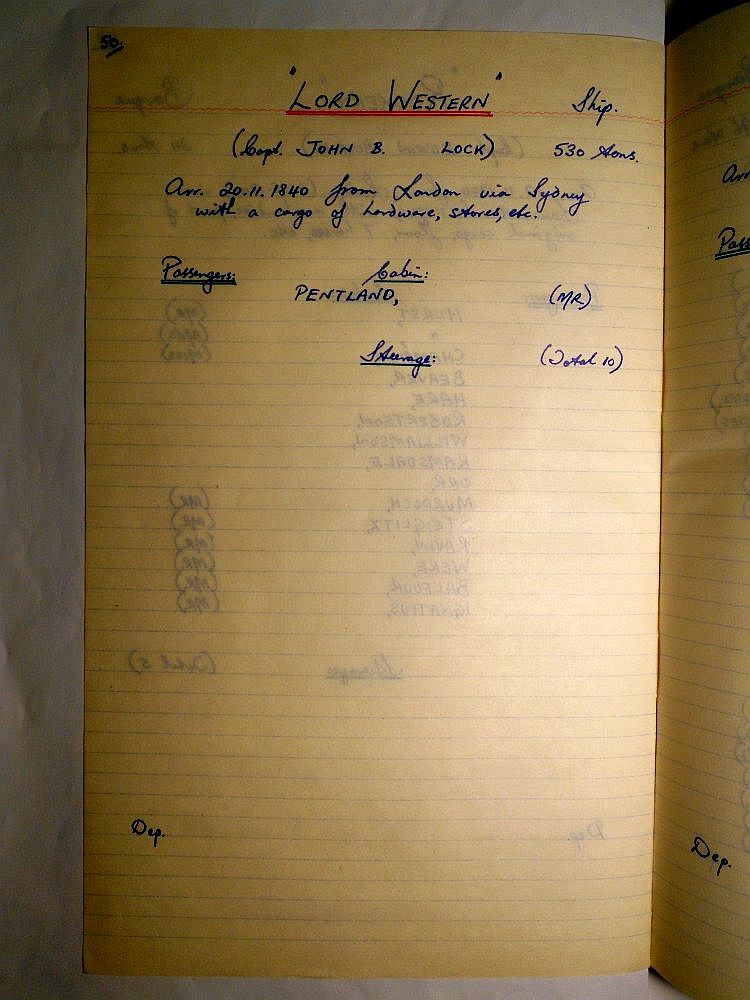 50.
"LORD WESTERN" Ship.
(Capt. JOHN B. LOCK) 530 tons.
Arr. 20.11.1840 from London via Sydney
with a cargo of hardware, stores, etc.
Passengers: Cabin:
PENTLAND, (MR)
Steerage: (Total 10)
Dep.
Dep.